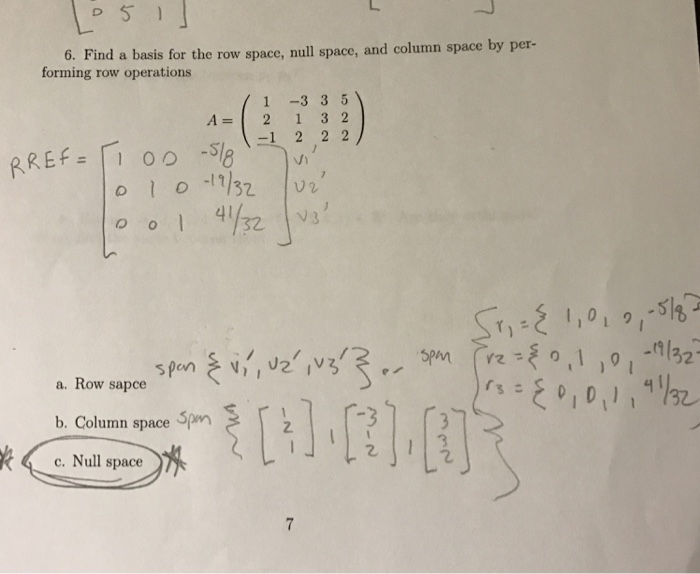 0 5 1
6. Find a basis for the row space, null space, and column space by per-
forming row operations
A = ( 1 -3 3 5
2 1 3 2
-1 2 2 2 )
RREF = [ 1 0 0 -5/8 ] v1'
0 1 0 -19/32 v2'
0 0 1 41/32 v3'
a. Row sapce span { v1', v2', v3' } or span { r1 = { 1, 0, 0, -5/8 }
r2 = { 0, 1, 0, -19/32
r3 = { 0, 0, 1, 41/32
b. Column space span { [ 1 2 1 ], [ -3 1 2 ], [ 3 3 2 ] }
c. Null space
7